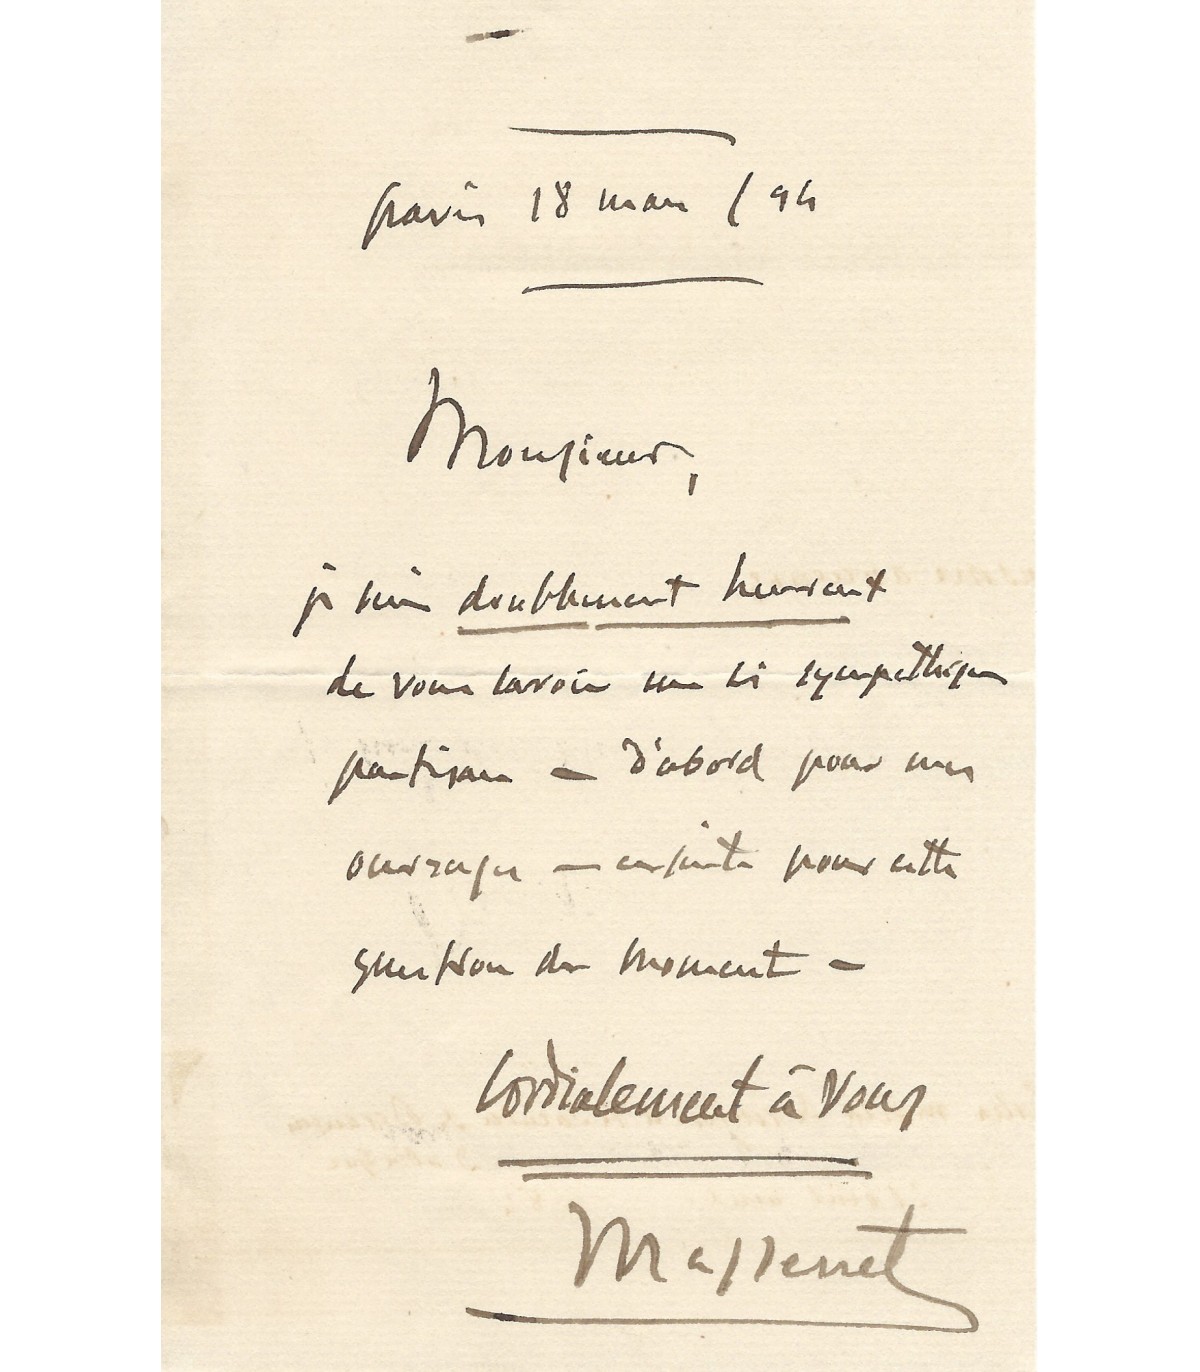 paris 18 mars / 94
Monsieur,
je suis doublement heureux
de vous savoir un si sympathique
partisan — d'abord pour mes
ouvrages — ensuite pour cette
question du moment —
Cordialement à vous
Massenet